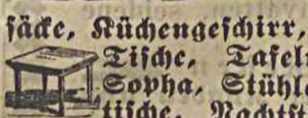 säcke, Küchengeschirr,
Tische, Tafel
Sopha, Stühl
tische, Nachtst